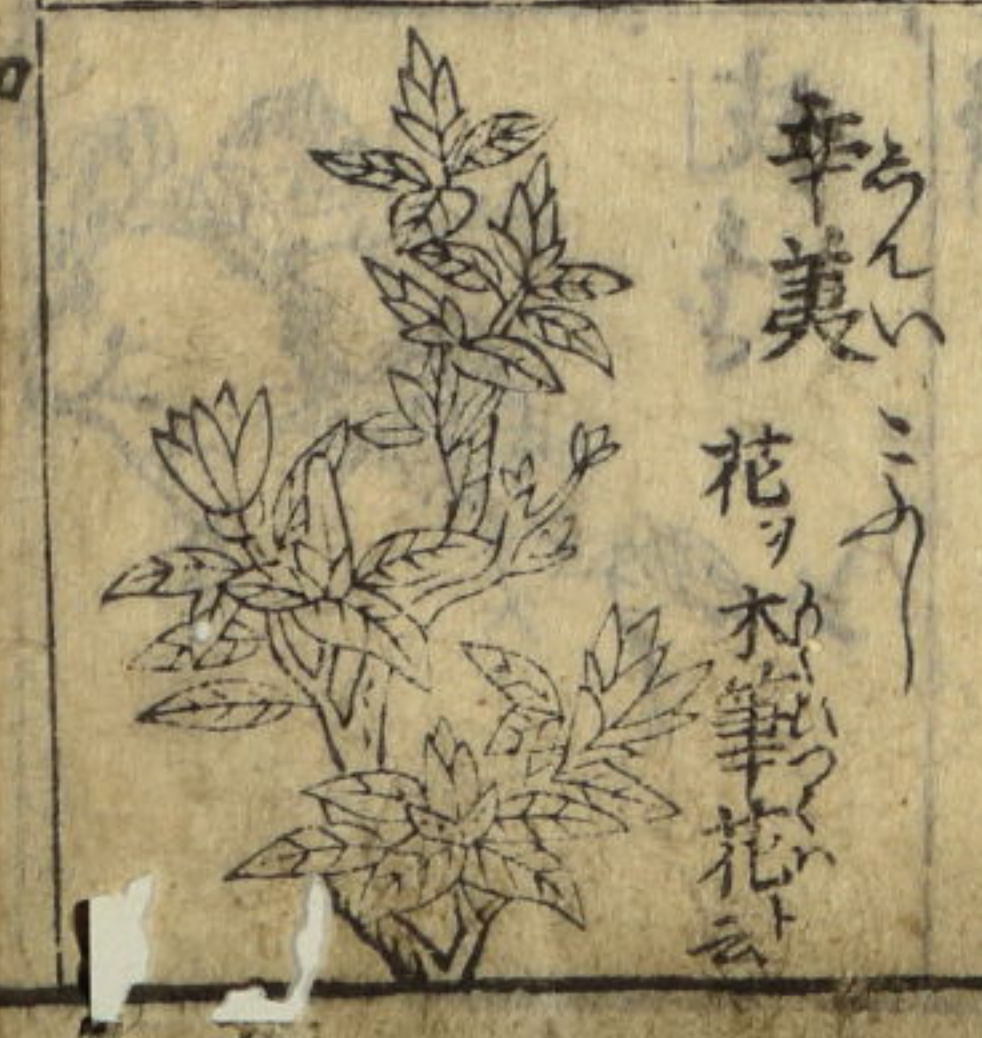 辛荑
しんい
こふし
花ヲ木筆花ト云
もくひつくハ